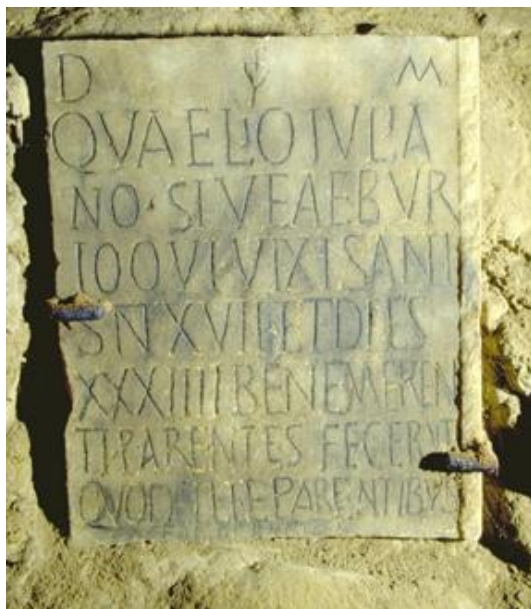 D M
QVAELIO IVLIA
NO · SIVE AEBVR
IO QVI · VIXIS ANI
S N XVIII ET DIES
XXXIIII BENEMEREN
TI · PARENTES FECERVT
QVOD ILLE PARENTIBVS